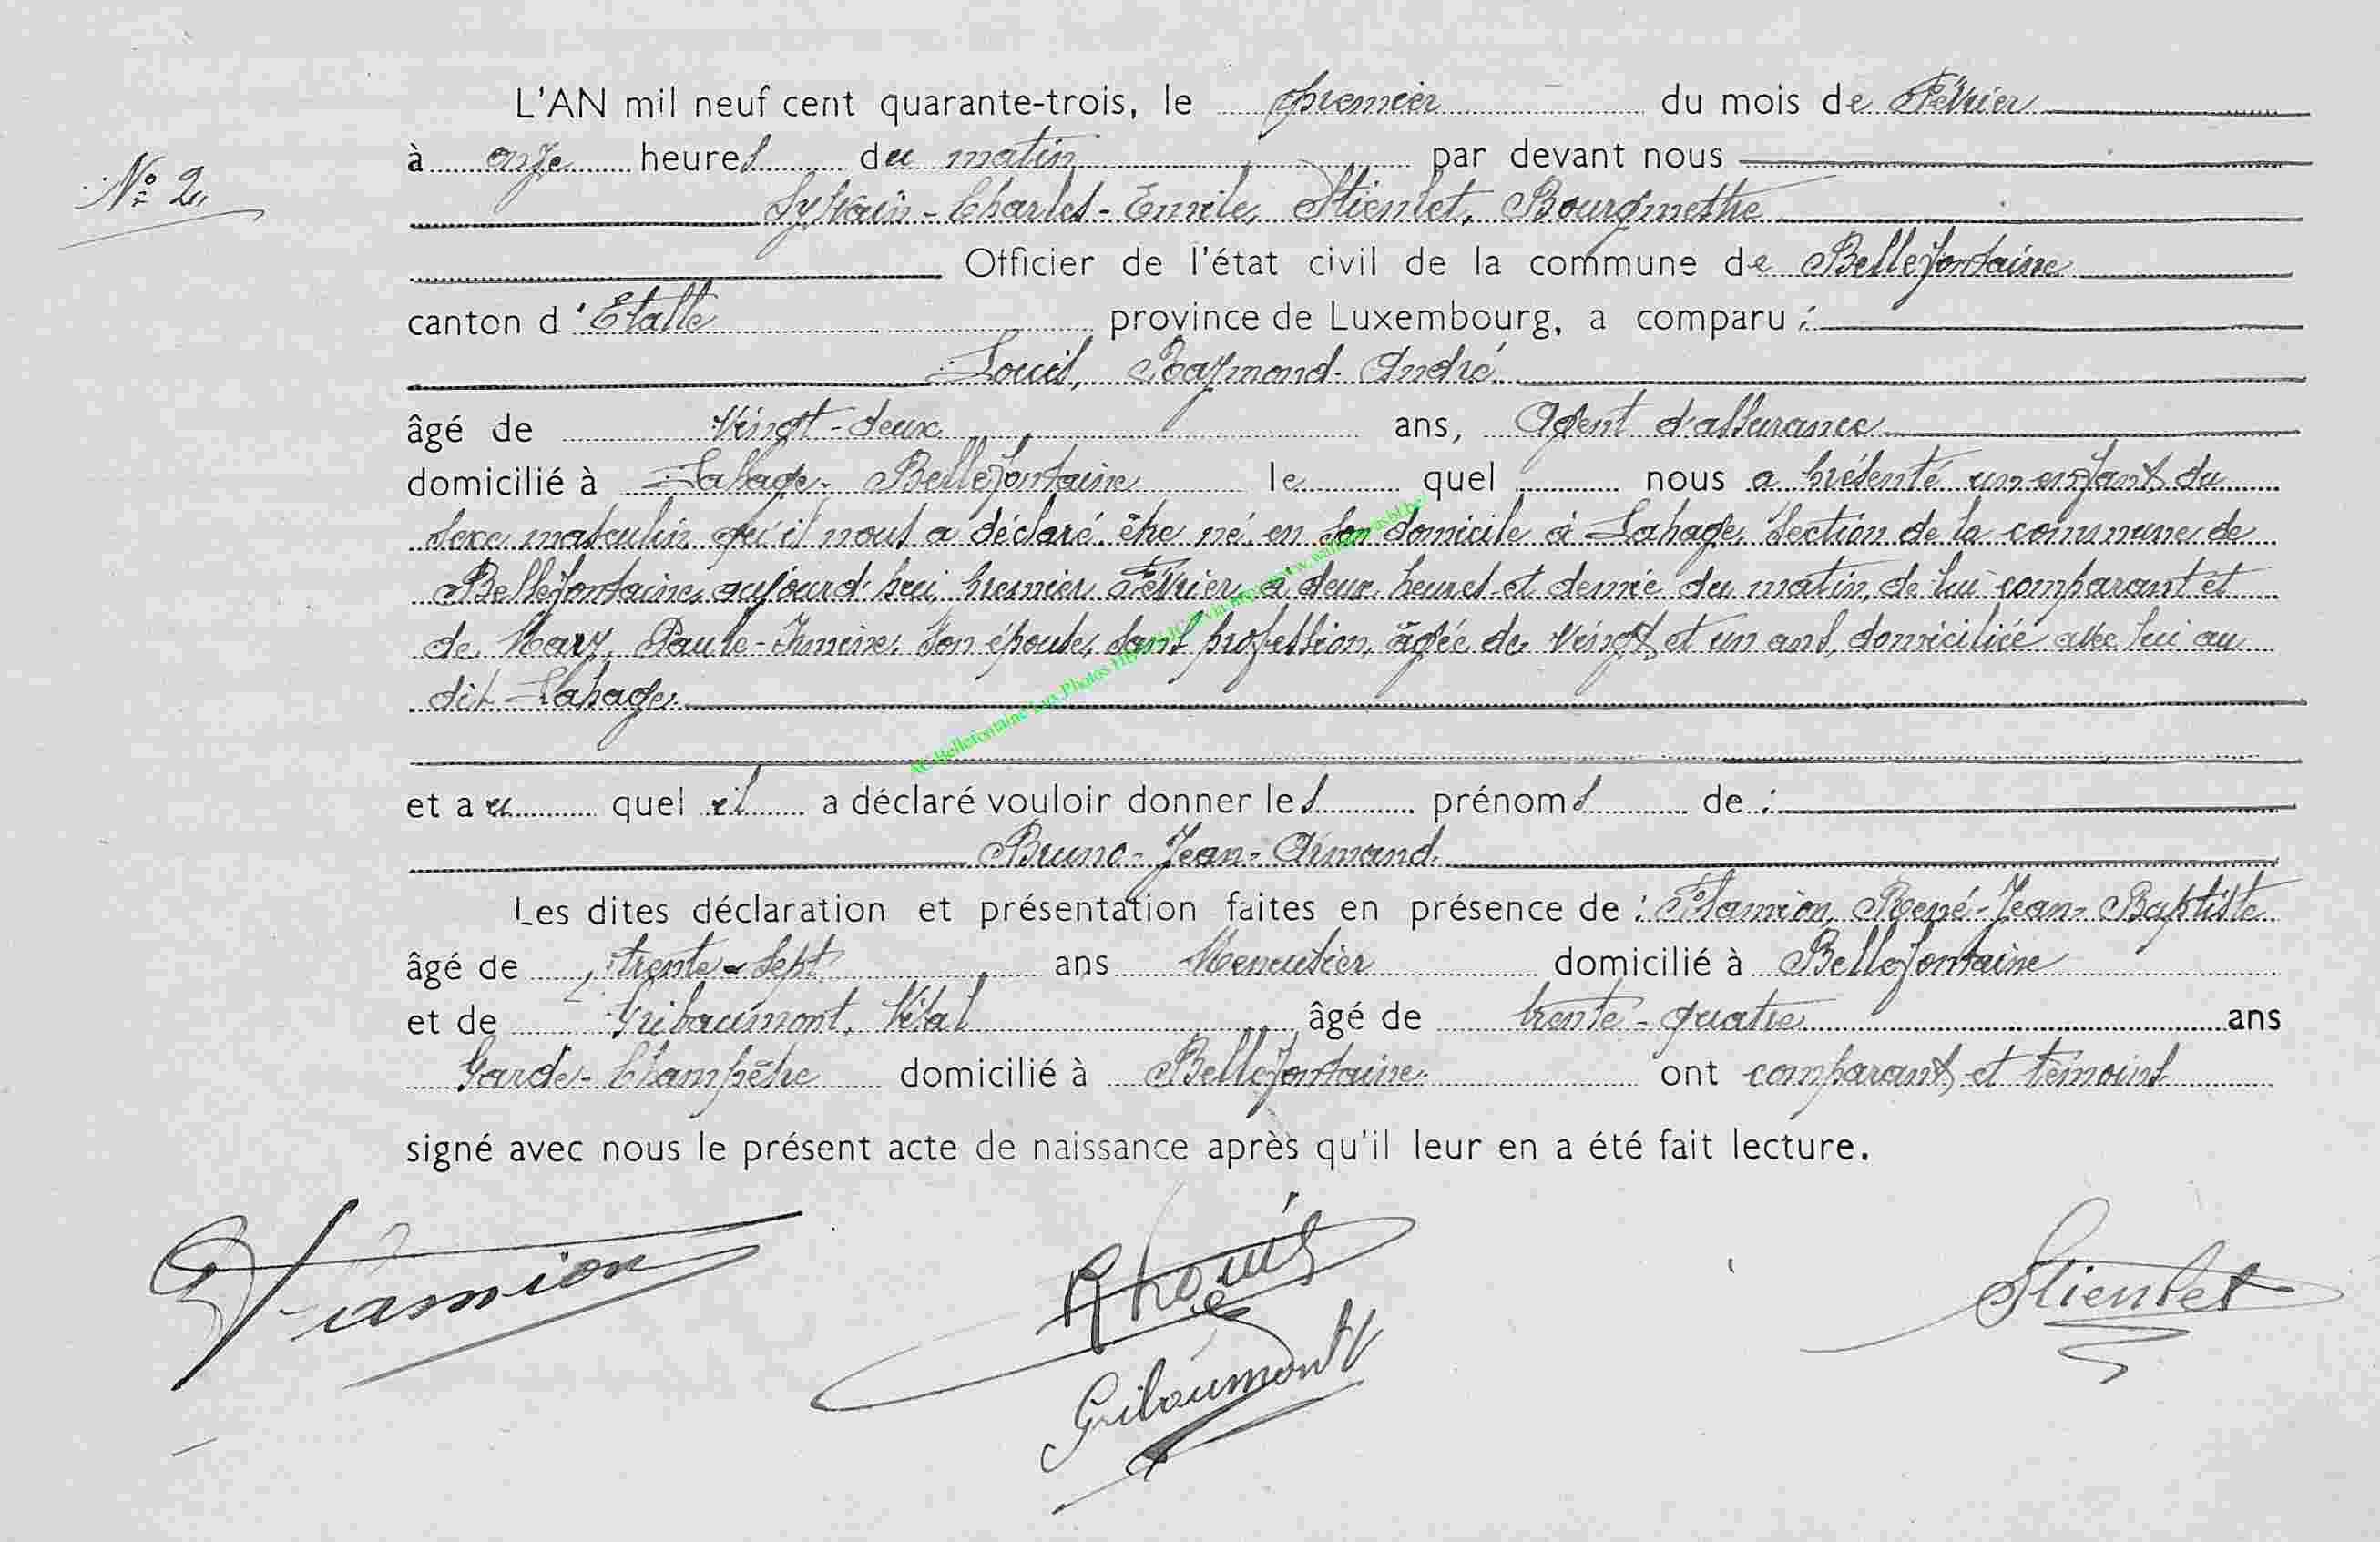 L'AN mil neuf cent quarante-trois, le premier du mois de Février
N° 2
à onze heures du matin par devant nous
Sylvain-Charles-Emile Stienlet, Bourgmestre
Officier de l'état civil de la commune de Bellefontaine
canton d'Etalle province de Luxembourg, a comparu :
Louis, Raymond-André
âgé de vingt-deux ans, Agent d'assurance
domicilié à Lahage-Bellefontaine lequel nous a présenté un enfant du
sexe masculin, qu'il nous a déclaré être né en son domicile à Lahage, section de la commune de
Bellefontaine, aujourd'hui premier Février à deux heures et demie du matin, de lui comparant et
de Mary, Paule- son épouse, sans profession, âgée de vingt et un ans, domiciliée avec lui au
dit Lahage.
et auquel il a déclaré vouloir donner les prénoms de :
Bruno-Jean-Armand.
Les dites déclaration et présentation faites en présence de : Flamion, René-Jean-Baptiste
âgé de trente-sept ans Menuisier domicilié à Bellefontaine
et de Gribaumont, Vital âgé de trente-quatre ans
Garde-Champêtre domicilié à Bellefontaine. ont comparant et témoins
signé avec nous le présent acte de naissance après qu'il leur en a été fait lecture.
Flamion
RLouis
Stienlet
Gribaumont V
AC Bellefontaine Lux Photos